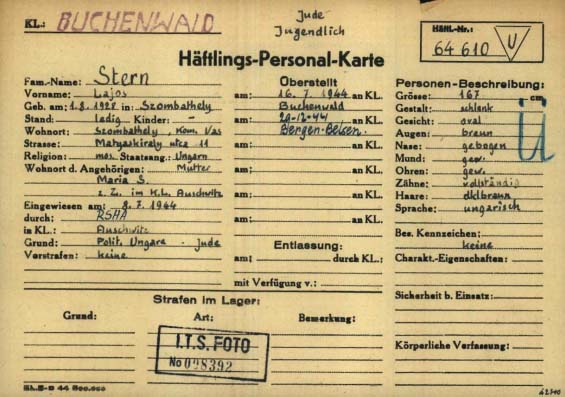 KL.: BUCHENWALD
Jude
Jugendlich
Häftl.-Nr.:
64 610 U
Häftlings-Personal-Karte
Fam.-Name: Stern
Vorname: Lajos
Geb. am: 1.8.1928 in: Szombathely
Stand: ledig Kinder: -
Wohnort: Szombathely, Kom. Vas
Strasse: Matyaskiraly utca 11
Religion: mos. Staatsang.: Ungarn
Wohnort d. Angehörigen: Mutter
Maria S.
z. Zt. im K.L. Auschwitz
Eingewiesen am: 8.7.1944
durch: RSHA
in KL.: Auschwitz
Grund: Polit. Ungare - Jude
Vorstrafen: keine
Überstellt
am: 16.7.1944 an KL.
Buchenwald
am: 29.12.44 an KL.
Bergen-Belsen.
am: an KL.
am: an KL.
am: an KL.
am: an KL.
Entlassung:
am: durch KL.:
mit Verfügung v.:
Personen-Beschreibung:
Grösse: 167 cm
Gestalt: schlank
Gesicht: oval
Augen: braun
Nase: gebogen
Mund: gew.
Ohren: gew.
Zähne: vollständig
Haare: dklbraun
Sprache: ungarisch
Ü
Bes. Kennzeichen:
keine
Charakt.-Eigenschaften:
Sicherheit b. Einsatz:
Körperliche Verfassung:
Strafen im Lager:
Grund: Art: Bemerkung:
I.T.S. FOTO
No 098392